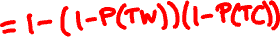 = 1 - (1-P(TW))(1-P(TC))